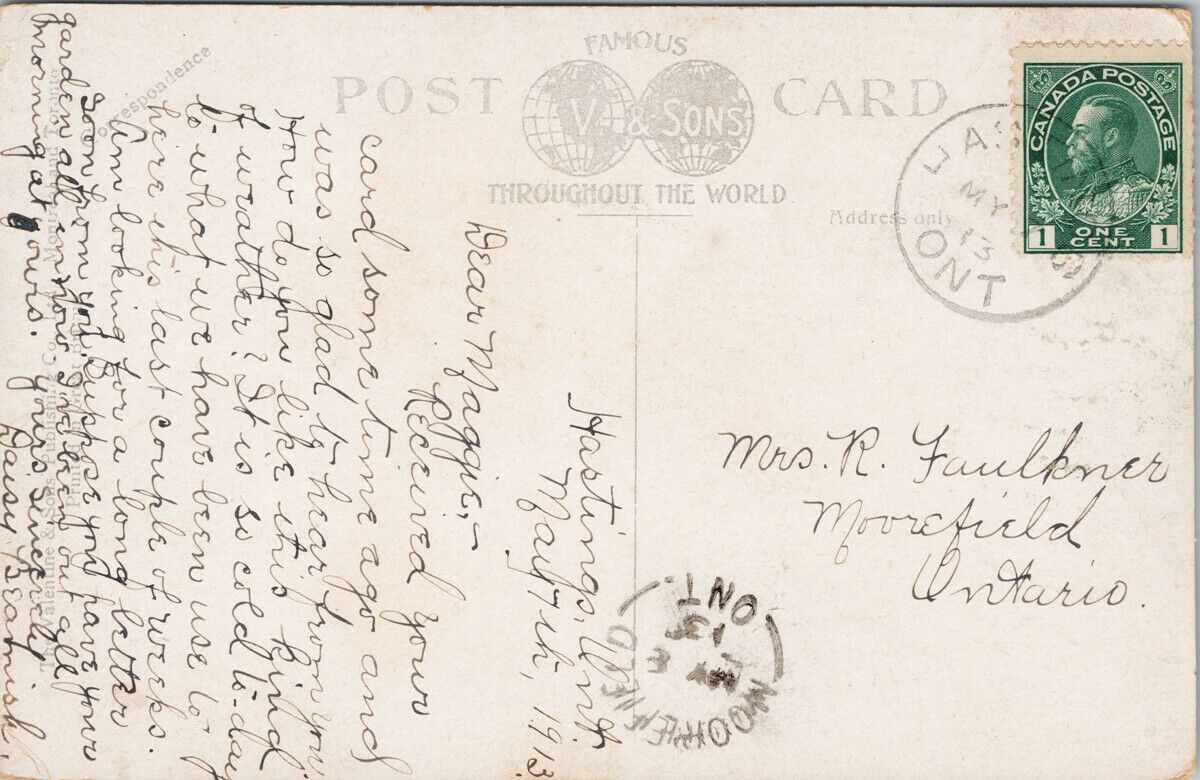 POST CARD
FAMOUS
V. & SONS
THROUGHOUT THE WORLD.
Address only
CANADA POSTAGE
1 ONE CENT 1
MY
13
ONT
Mrs. R. Faulkner
Moorefield
Ontario.
MOOREFIELD
ONT.
MY
13
Hastings, Ont.
May 7th, 1913
Dear Maggie,-
Received your
card some time ago and
was so glad to hear from you
How do you like this kind
of weather? It is so cold to-day
to what we have been use to
here this last couple of weeks.
Am looking for a long letter
soon from you. Suppose you have your
garden all in now I've been out all
morning at ours. Yours sincerely
Daisy Beamish.
Correspondence
The Valentine & Sons Publishing Co. Montreal and Toronto
Printed in Great